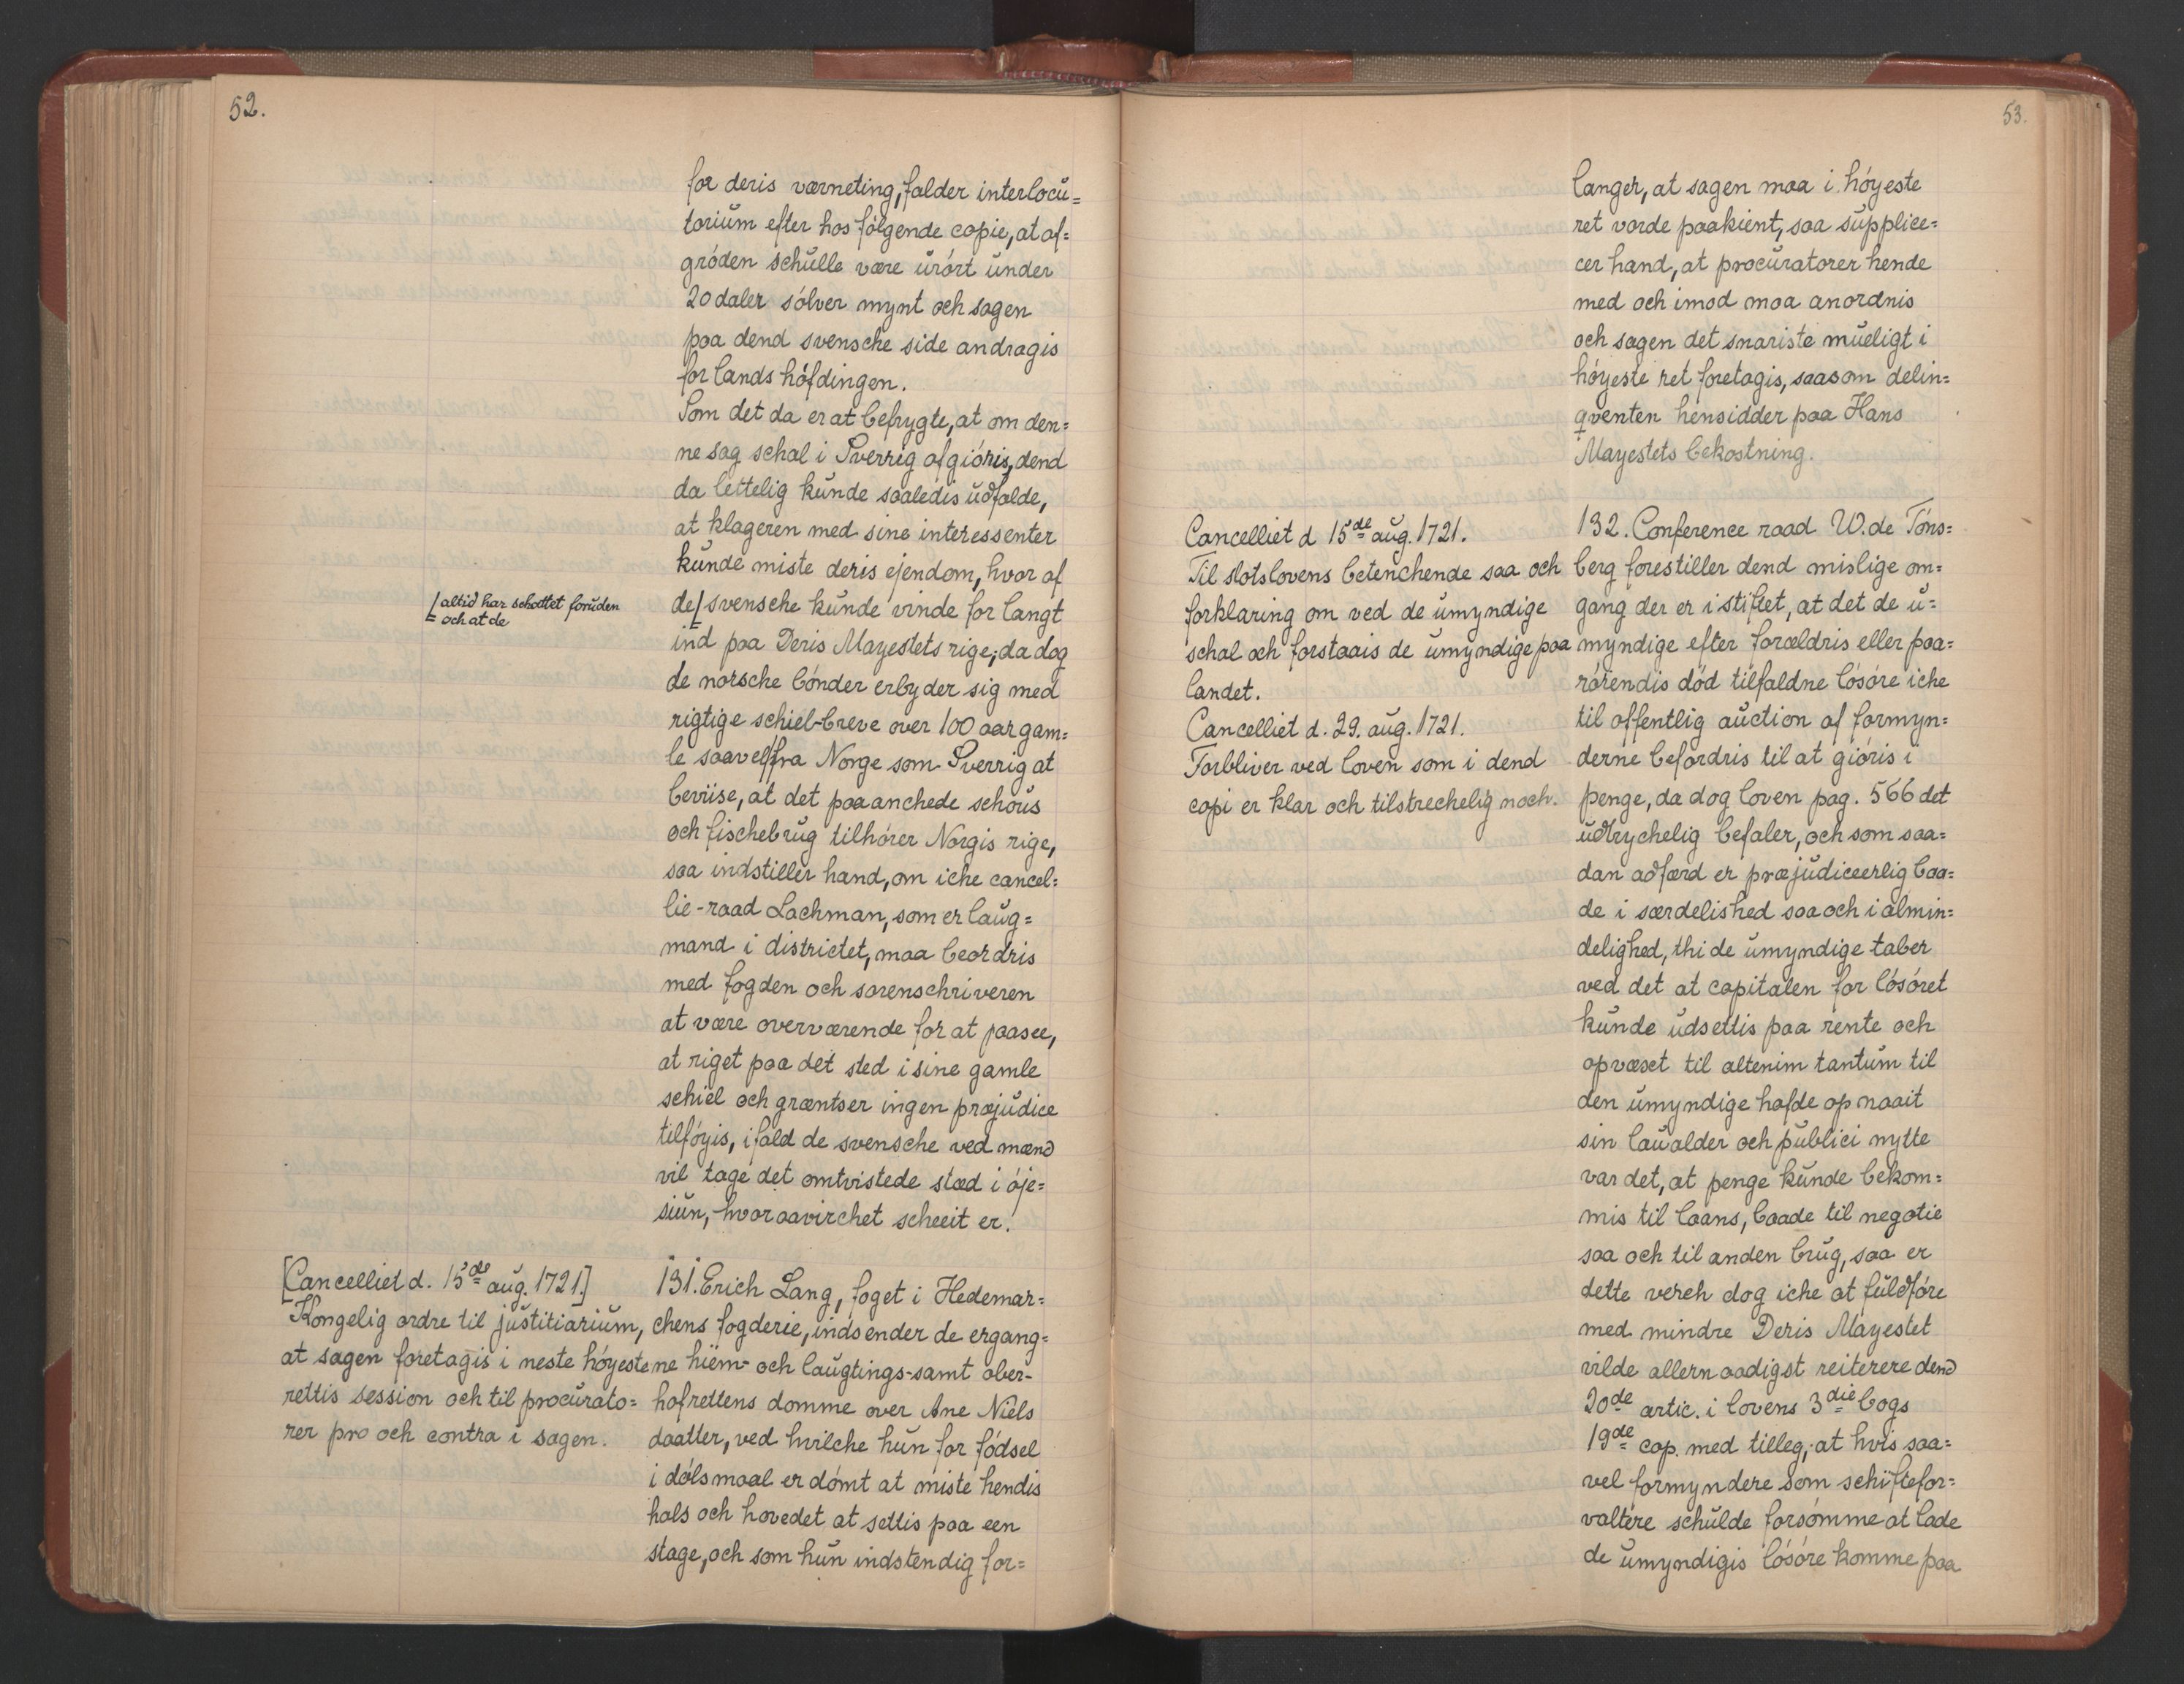 52.
for deris værneting, falder interlocu=
torium efter hos følgende copie, at af=
grøden schulle være urørt under
20 daler sølver mynt och sagen
paa dend svensche side andragis
for landshøfdingen.
Som det da er at befrygte, at om den=
ne sag schal i Sverrig afgiøris, dend
da lettelig kunde saaledis udfalde,
at klageren med sine interessenter
kunde miste deris ejendom, hvor af
de [ svensche kunde vinde for langt
[ altid har schattet foruden
och at de
ind paa Deris Mayestets rige; da dog
de norsche bønder erbyder sig med
rigtige schiel-breve over 100 aar gam=
le saavel fra Norge som Sverrig at
beviise, at det paaanchede schous
och fischebrug tilhører Norgis rige,
saa indstiller hand, om iche cancel=
lie-raad Lachman, som er laug=
mand i districtet, maa beordris
med fogden och sorenschriveren
at være overværende for at paasee,
at riget paa det sted i sine gamle
schiel och græntser ingen præjudice
tilføyis, ifald de svensche ved mænd
vil tage det omtvistede stæd i øje=
siun, hvoraavirchet scheeit er.
[Cancelliet d. 15de aug. 1721.]
Kongelig ordre til justitiarium,
at sagen foretagis i neste høyeste
rettis session och til procurato=
rer pro och contra i sagen.
131. Erich Lang, foget i Hedemar=
chens fogderie, indsender de ergang=
ne hiem- och laugtings- samt ober-
hofrettens domme over Ane Niels
daatter, ved hvilche hun for fødsel
i dølsmaal er dømt at miste hendis
hals och hovedet at settis paa een
stage, och som hun indstendig for=
53.
langer, at sagen maa i høyeste
ret vorde paakient, saa supplice=
cer hand, at procuratorer hende
med och imod maa anordnis
och sagen det snariste mueligt i
høyeste ret foretagis, saasom delin=
qventen hensidder paa Hans
Mayestets bekostning.
Cancelliet d 15de aug. 1721.
Til slotslovens betenchende saa och
forklaring om ved de umyndige
schal och forstaais de umyndige paa
landet.
Cancelliet d. 29. aug. 1721.
Forbliver ved loven som i dend
copi er klar och tilstrechelig noch.
132. Conference raad W. de Tøns=
berg forestiller dend mislige om=
gang der er i stiftet, at det de u=
myndige efter forældris eller paa=
rørendis død tilfaldne løsøre iche
til offentlig auction af formyn=
derne befordris til at giøris i
penge, da dog loven pag. 566 det
udtrychelig befaler, och som saa=
dan adfærd er præjudiceerlig baa=
de i særdelished saa och i almin=
delighed, thi de umyndige taber
ved det at capitalen for løsøret
kunde udsettis paa rente och
opvæxet til altenim tantum til
den umyndige hafde opnaait
sin laualder och publici nytte
var det, at penge kunde bekom=
mis til laans, baade til negotie
saa och til anden brug, saa er
dette verch dog iche at fuldføre
med mindre Deris Mayestet
vilde allernaadigst reiterere dend
20de artic. i lovens 3die bogs
19de cap. med tilleg, at hvis saa=
vel formyndere som schiftefor=
valtere schulde forsømme at lade
de umyndigis løsøre komme paa